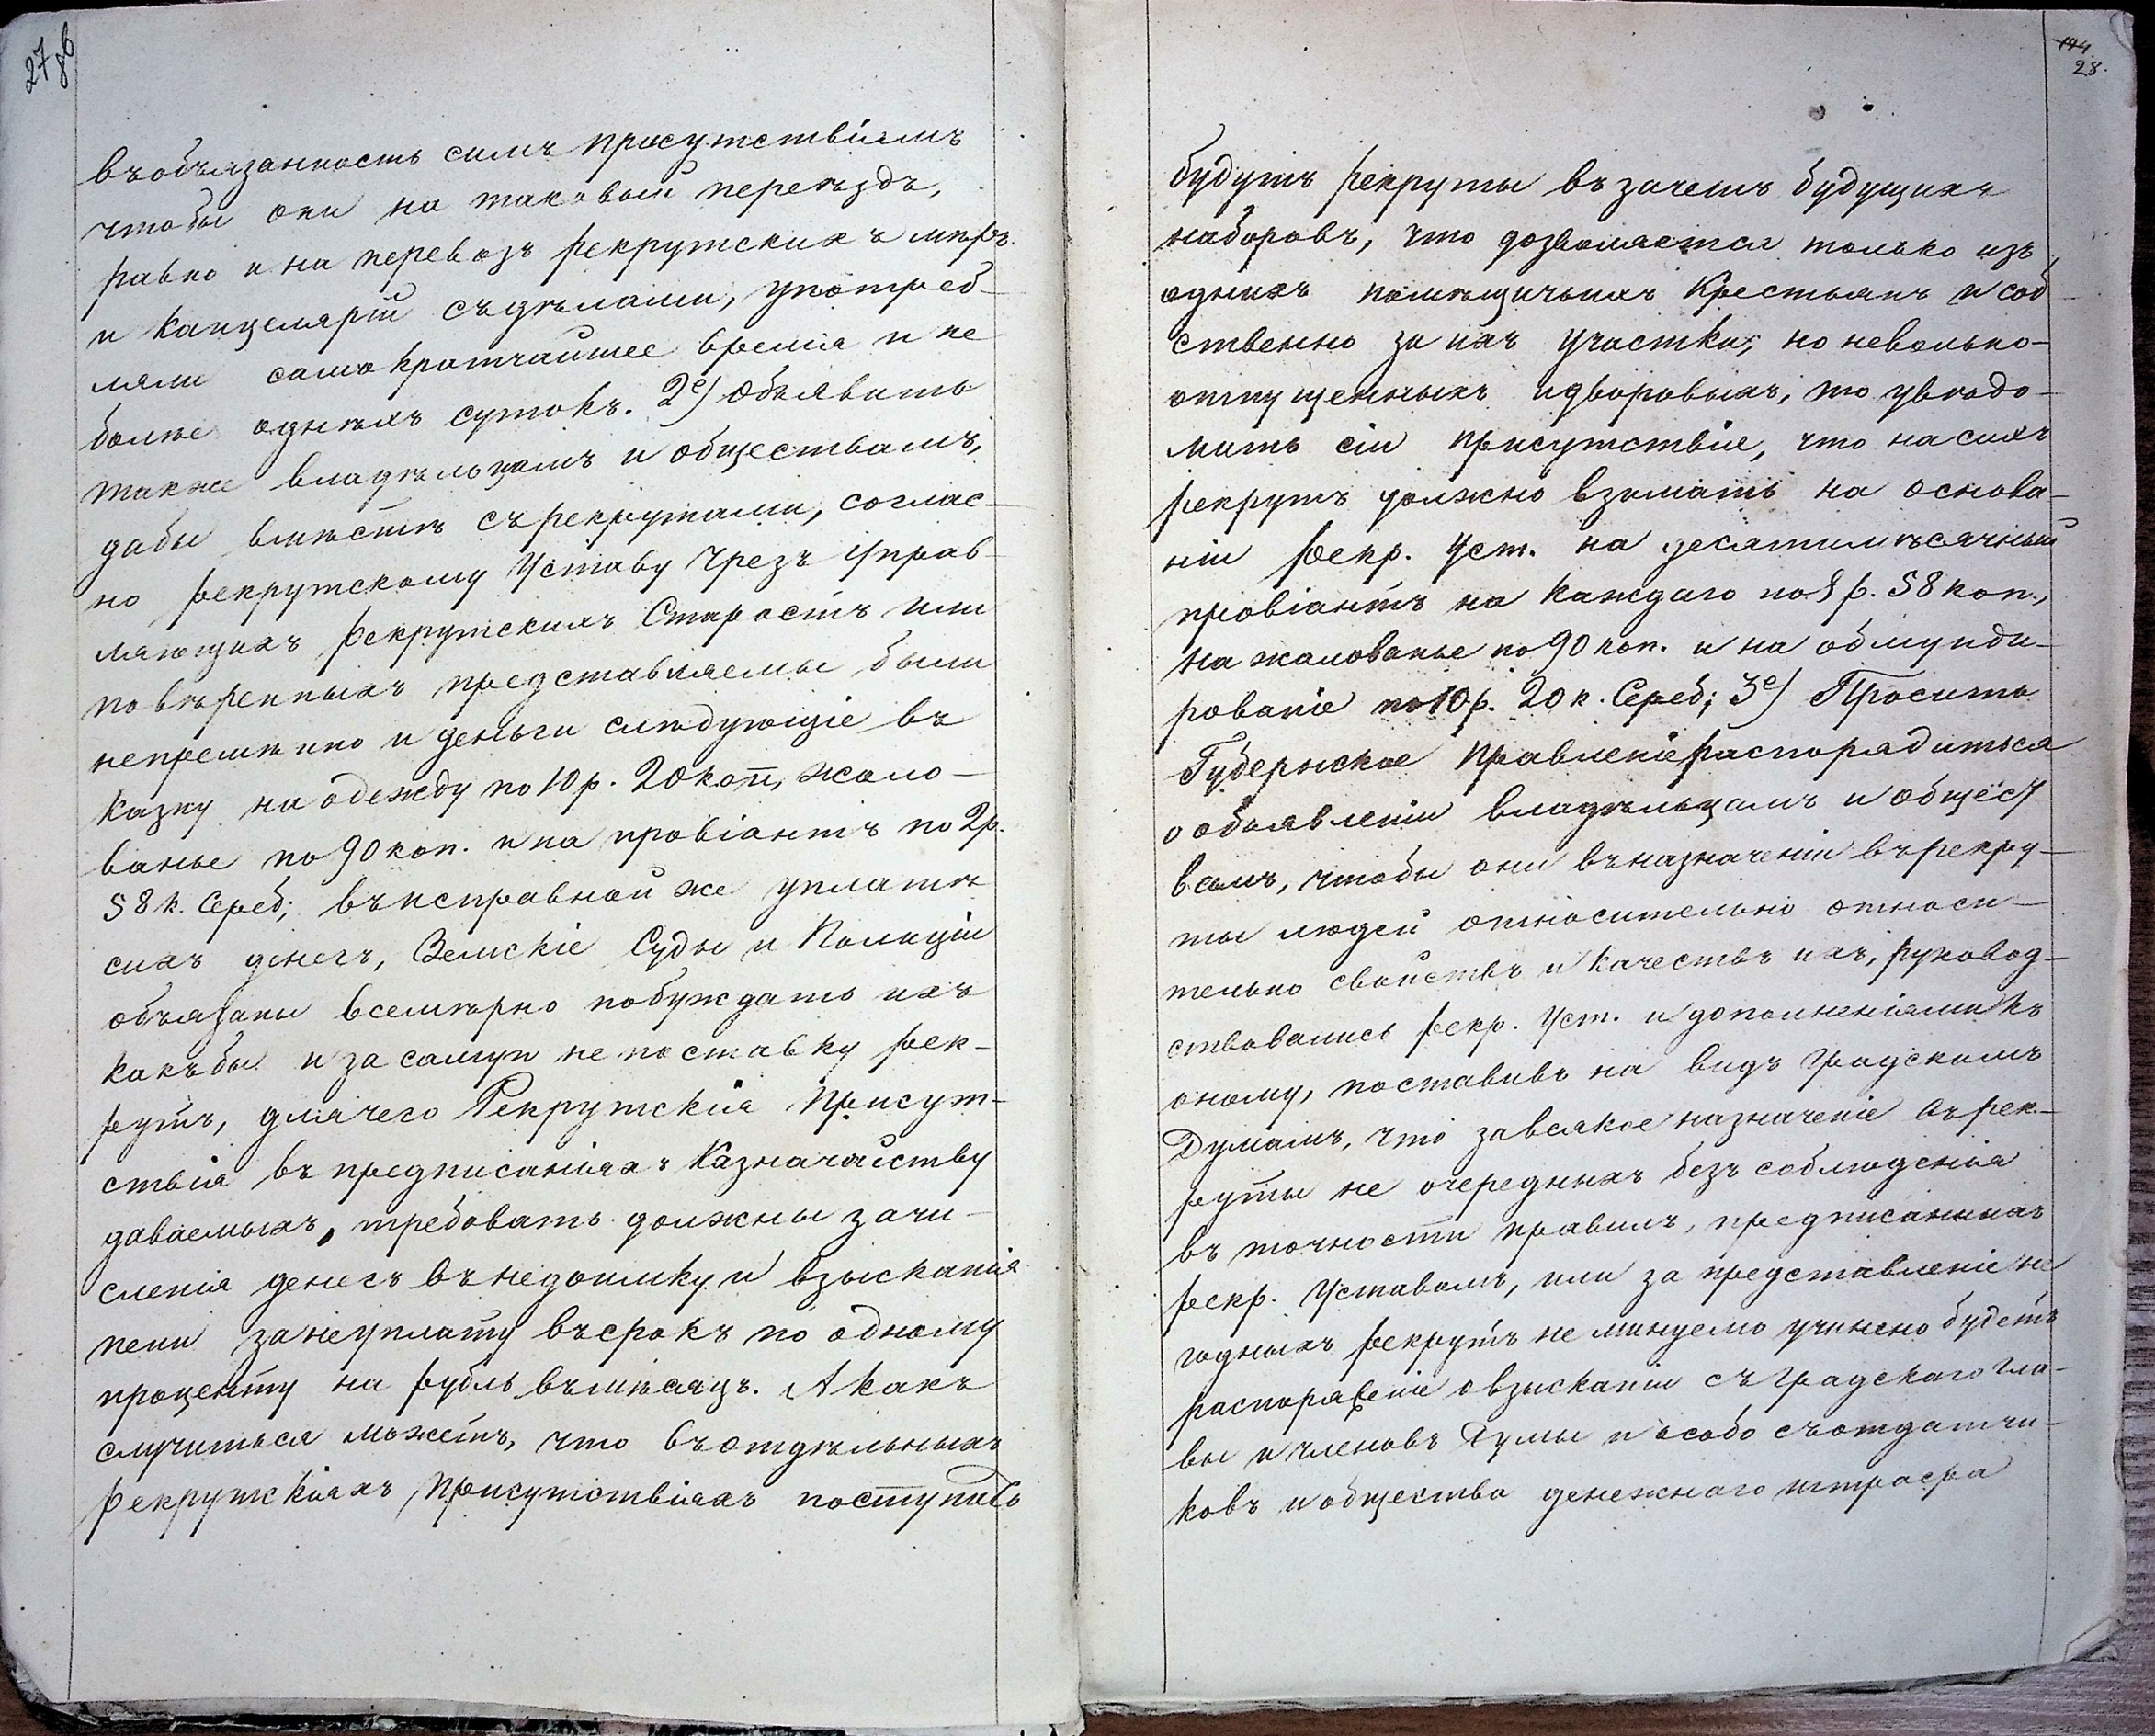 27
86
въобязанность симъ присутствіямъ
чтобы они на таковый переѣздъ,
равно и на перевозъ рекрутскихъ мѣръ
и Канцелярій съдѣлами, употреб-
ляли само кратчайшее время и не
болѣе однѣхъ сутокъ. 2е) Объявить
также владѣльцамъ и обществамъ,
дабы вмѣстѣ съ рекрутами, соглас-
но рекрутскому Уставу чрезъ Управ-
ляющихъ рекрутскихъ Старостъ или
повѣренныхъ представляемы были
непремѣнно и деньги слѣдующіе въ
казну на одежду по 10 р. 20 коп, жало-
ванье по 90 коп. и на провіантъ по 2 р.
58 к. Сереб; въисправной же уплатѣ
сихъ денегъ, Земскіе Суды и Полиціи
обязаны всемѣрно побуждать ихъ
какъбы и за самую не поставку рек-
рутъ, длячего Рекрутскія Присут-
ствія въ предписаніяхъ Казначейству
даваемыхъ, требовать должны зачи-
сленія денегъ въ недоимку и взысканія
пени занеуплату въсрокъ по одному
проценту на рубль вълмѣсяцъ. А какъ
случиться можетъ, что въотдѣльныхъ
рекрутскіяхъ Присутствіяхъ поступать
144.
28.
будутъ рекруты въ зачетъ будущихъ
наборовъ, что дозволяется только изъ
однихъ помѣщичьихъ Крестьянъ и соб-
ственно за ихъ участки, но невольно-
отпущенныхъ идворовыхъ, то увѣдо-
мить сіи присутствіе, что на сихъ
рекрутъ должно взимать на основа-
ніи Рекр. Уст. на десятимѣсячный
провіантъ на каждаго по 8 р. 58 коп.,
на жалованье по 90 коп. и на обмунди-
рованіе по 10 р. 20 к. Сереб; 3е) Просить
Губернское Правленіе распорядиться
о объявленіи владѣльцамъ и общест
вамъ, чтобы они въназначеніи върекру-
ты людей относительно относи-
тельно свойствъ и качествъ ихъ, руковод-
ствовались рекр. Уст. и дополненіями къ
оному, поставивъ на видъ Градскимъ
Думамъ, что завсякое назначеніе въ рек-
руты не очередныхъ безъ соблюденія
въ точности правилъ, предписанныхъ
рекр. Уставомъ, или за представленіе не
годныхъ рекрутъ не минуемо учинено будетъ
распоряженіе о взысканіи съ Градскаго Гла-
вы и членовъ Думы и особо съотдатчи-
ковъ и общества денежнаго штрафа